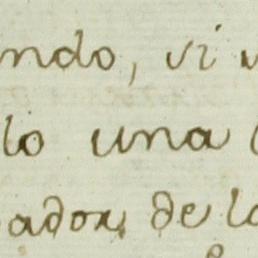 ndo, vi
lo una
ador, de lo